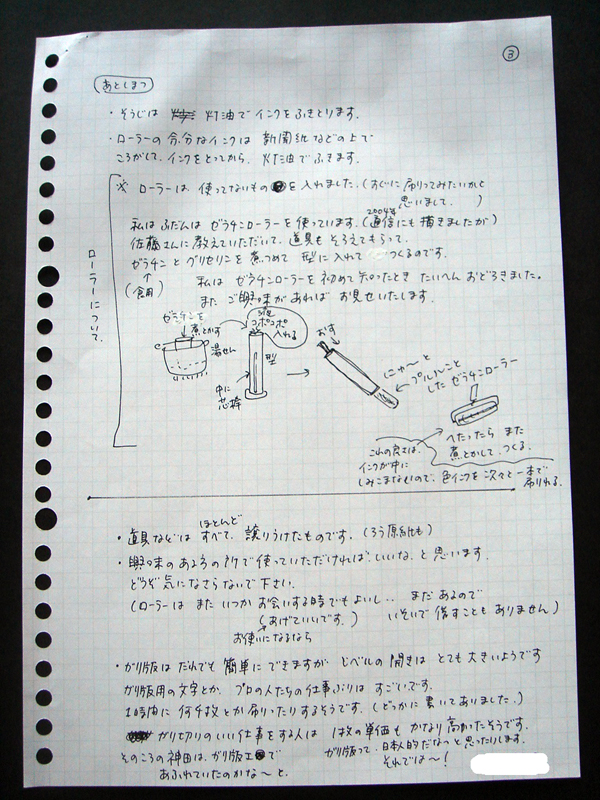 ③
あとしまつ
・そうじは 灯油でインクをふきとります。
・ローラーの余分なインクは 新聞紙などの上で
ころがして、インクをとってから、灯油でふきます。
※ ローラーは、使ってないものを入れました。(すぐに刷ってみたいかと
思いまして。)
私はふだんは ゼラチンローラーを使っています。(通信にも描きましたが)
2004年
佐藤さんに教えていただいて、道具もそろえてもらって、
ゼラチンとグリセリンを煮つめて 型に入れて つくるのです。
(食用)
私は ゼラチンローラーを初めて知ったとき たいへんおどろきました。
また ご興味があれば お見せいたします。
ローラーについて、
ゼラチンを
煮とかす
湯せん
コポコポ
入れる
型
中に
芯棒
おす
にゅ〜と
プルルンこと
した ゼラチンローラー
へたったら また
煮とかして、つくる。
これの良さは、
インクが中に
しみこまないので、色インクを次々と一本で
刷れる。
・道具などは ほとんど すべて、譲りうけたものです。(ろう原紙も)
・興味のある方の所で使っていただければ、いいな、と思います。
どうぞ気になさらないで下さい。
(ローラーは また いつか お会いする時でもよいし.. まだあるので
(あげていいです。) いそいで 借すこともありません)
お使いになるなら
・ガリ版は だれでも 簡単に できますが レベルの開きは とても大きいようです
ガリ版用の文字とか、プロの人たちの仕事ぶりは すごいです。
1時間に 何千枚とか刷ったりするそうです。(どっかに書いてありました。)
ガリ切りのいい仕事をする人は 1枚の単価も かなり高かったそうです。
そのころの神田は、ガリ版工で
あふれていたのかな〜と。
ガリ版って、日本人的だなっと 思ったりします。
それでは〜!